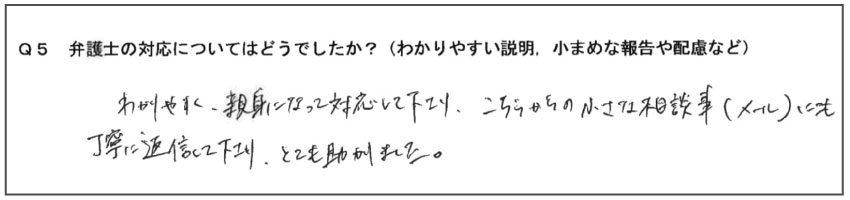 Q5 弁護士の対応についてはどうでしたか？（わかりやすい説明，小まめな報告や配慮など）
わかりやすく、親身になって対応して下さり、こちらからの小さな相談事(メール)にも
丁寧に返信して下さり、とても助かりました。